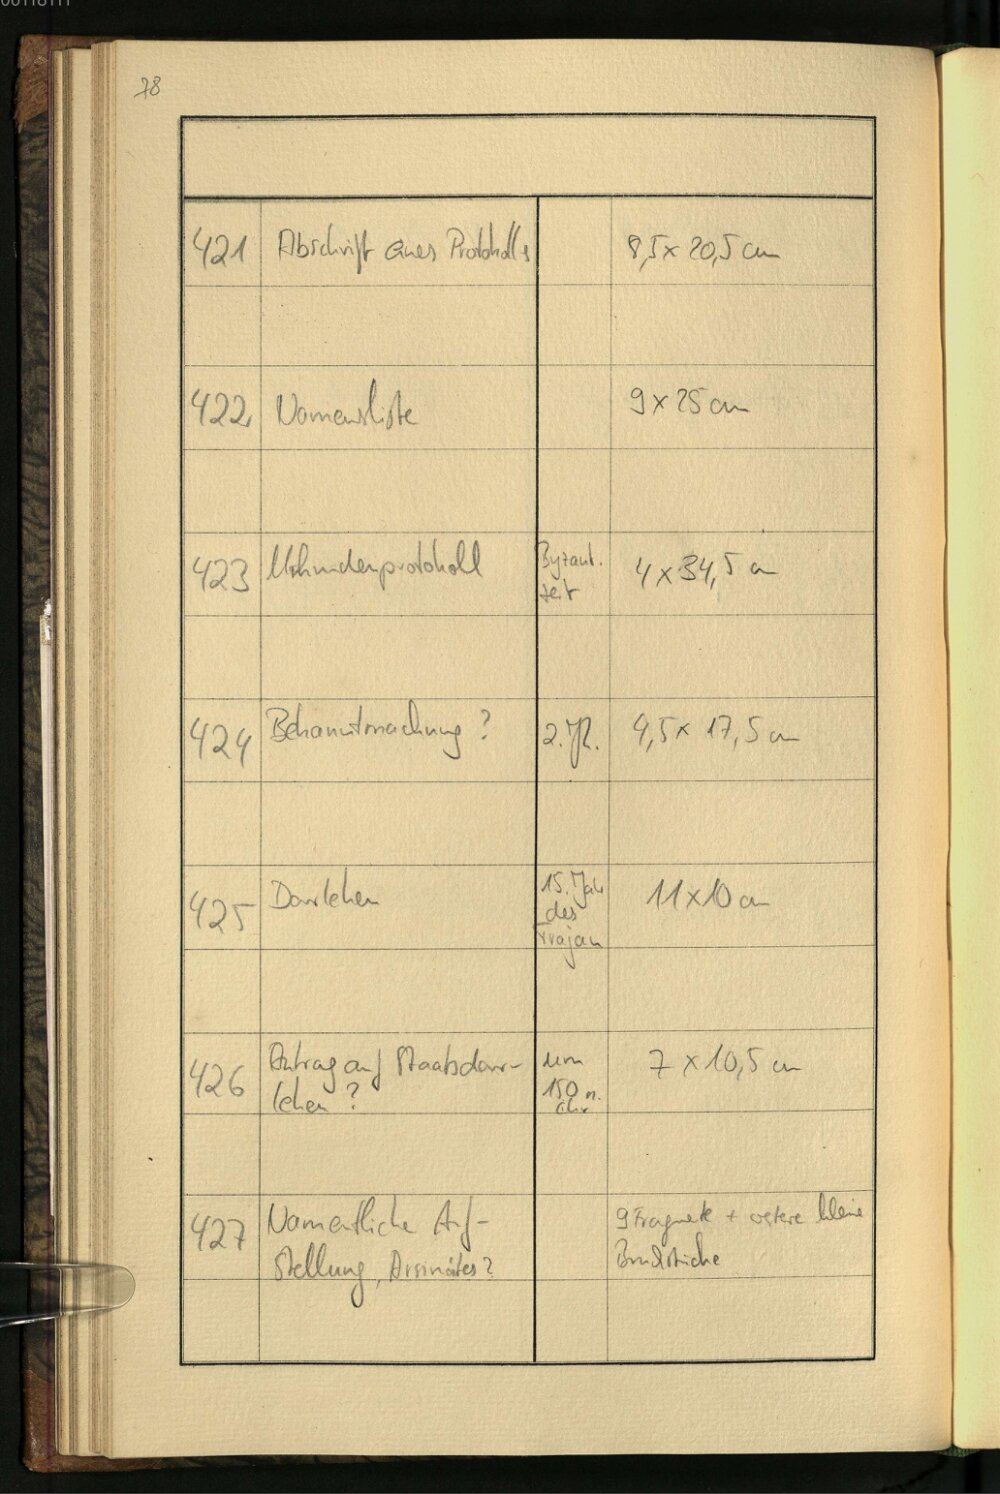 78
421 Abschrift eines Protokolls 8,5 x 20,5 cm
422 Namensliste 9 x 25 cm
423 Urkundenprotokoll Byzant. 4 x 34,5 cm
zeit
424 Bekanntmachung ? 2. Jh. 4,5 x 17,5 cm
425 Darlehen 15. Jahr 11 x 10 cm
des
Trajan
426 Antrag auf Staatsdar- um 7 x 10,5 cm
lehen ? 150 n.
Chr
427 Namentliche Auf- 9 Fragmente + weitere kleine
stellung, Arsinoites ? Bruchstücke